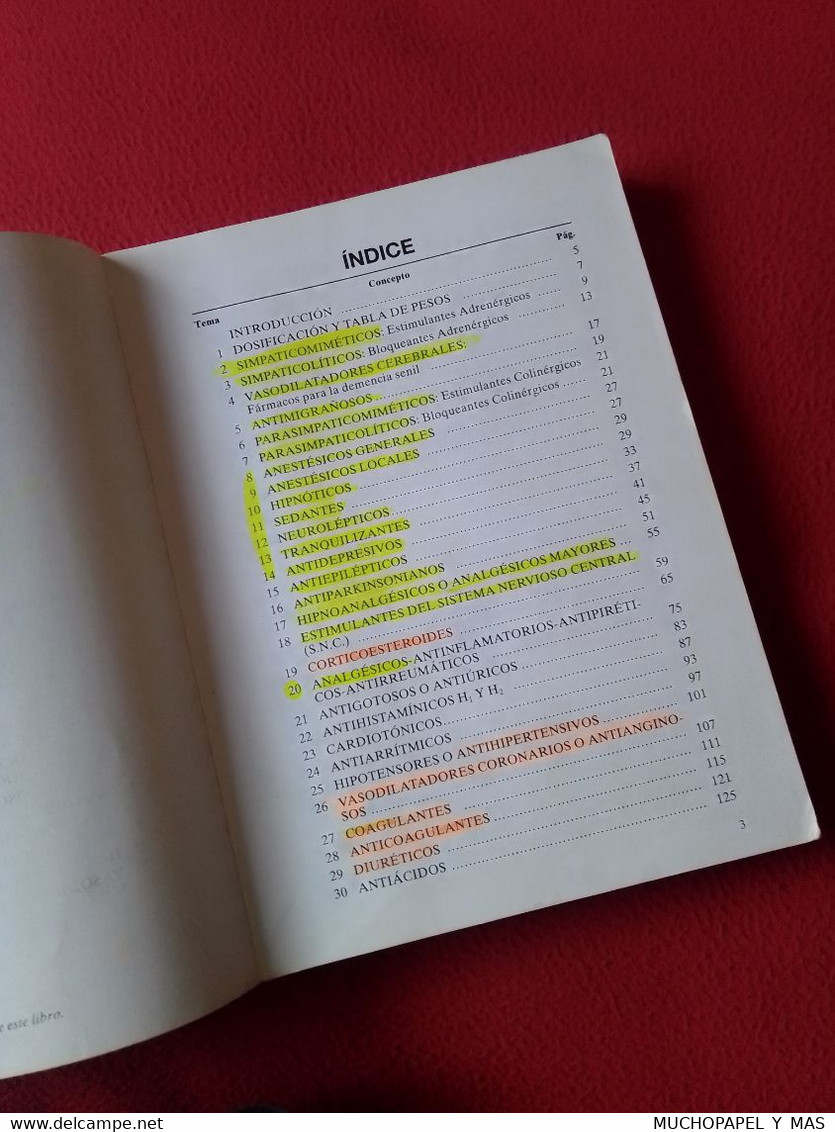 ÍNDICE
Tema Concepto Pág.
INTRODUCCIÓN 5
1 DOSIFICACIÓN Y TABLA DE PESOS 7
2 SIMPATICOMIMÉTICOS: Estimulantes Adrenérgicos 9
3 SIMPATICOLÍTICOS: Bloqueantes Adrenérgicos 13
4 VASODILATADORES CEREBRALES:
Fármacos para la demencia senil 17
5 ANTIMIGRAÑOSOS 19
6 PARASIMPATICOMIMÉTICOS: Estimulantes Colinérgicos 21
7 PARASIMPATICOLÍTICOS: Bloqueantes Colinérgicos 21
8 ANESTÉSICOS GENERALES 27
9 ANESTÉSICOS LOCALES 27
10 HIPNÓTICOS 29
11 SEDANTES 29
12 NEUROLÉPTICOS 33
13 TRANQUILIZANTES 37
14 ANTIDEPRESIVOS 41
15 ANTIEPILÉPTICOS 45
16 ANTIPARKINSONIANOS 51
17 HIPNOANALGÉSICOS O ANALGÉSICOS MAYORES 55
18 ESTIMULANTES DEL SISTEMA NERVIOSO CENTRAL
(S.N.C.) 59
19 CORTICOESTEROIDES 65
20 ANALGÉSICOS-ANTINFLAMATORIOS-ANTIPIRÉTI-
COS-ANTIRREUMÁTICOS 75
21 ANTIGOTOSOS O ANTIÚRICOS 83
22 ANTIHISTAMÍNICOS H₁ Y H₂ 87
23 CARDIOTÓNICOS 93
24 ANTIARRÍTMICOS 97
25 HIPOTENSORES O ANTIHIPERTENSIVOS 101
26 VASODILATADORES CORONARIOS O ANTIANGINO-
SOS 107
27 COAGULANTES 111
28 ANTICOAGULANTES 115
29 DIURÉTICOS 121
30 ANTIÁCIDOS 125
3
este libro.
MUCHOPAPEL Y MAS